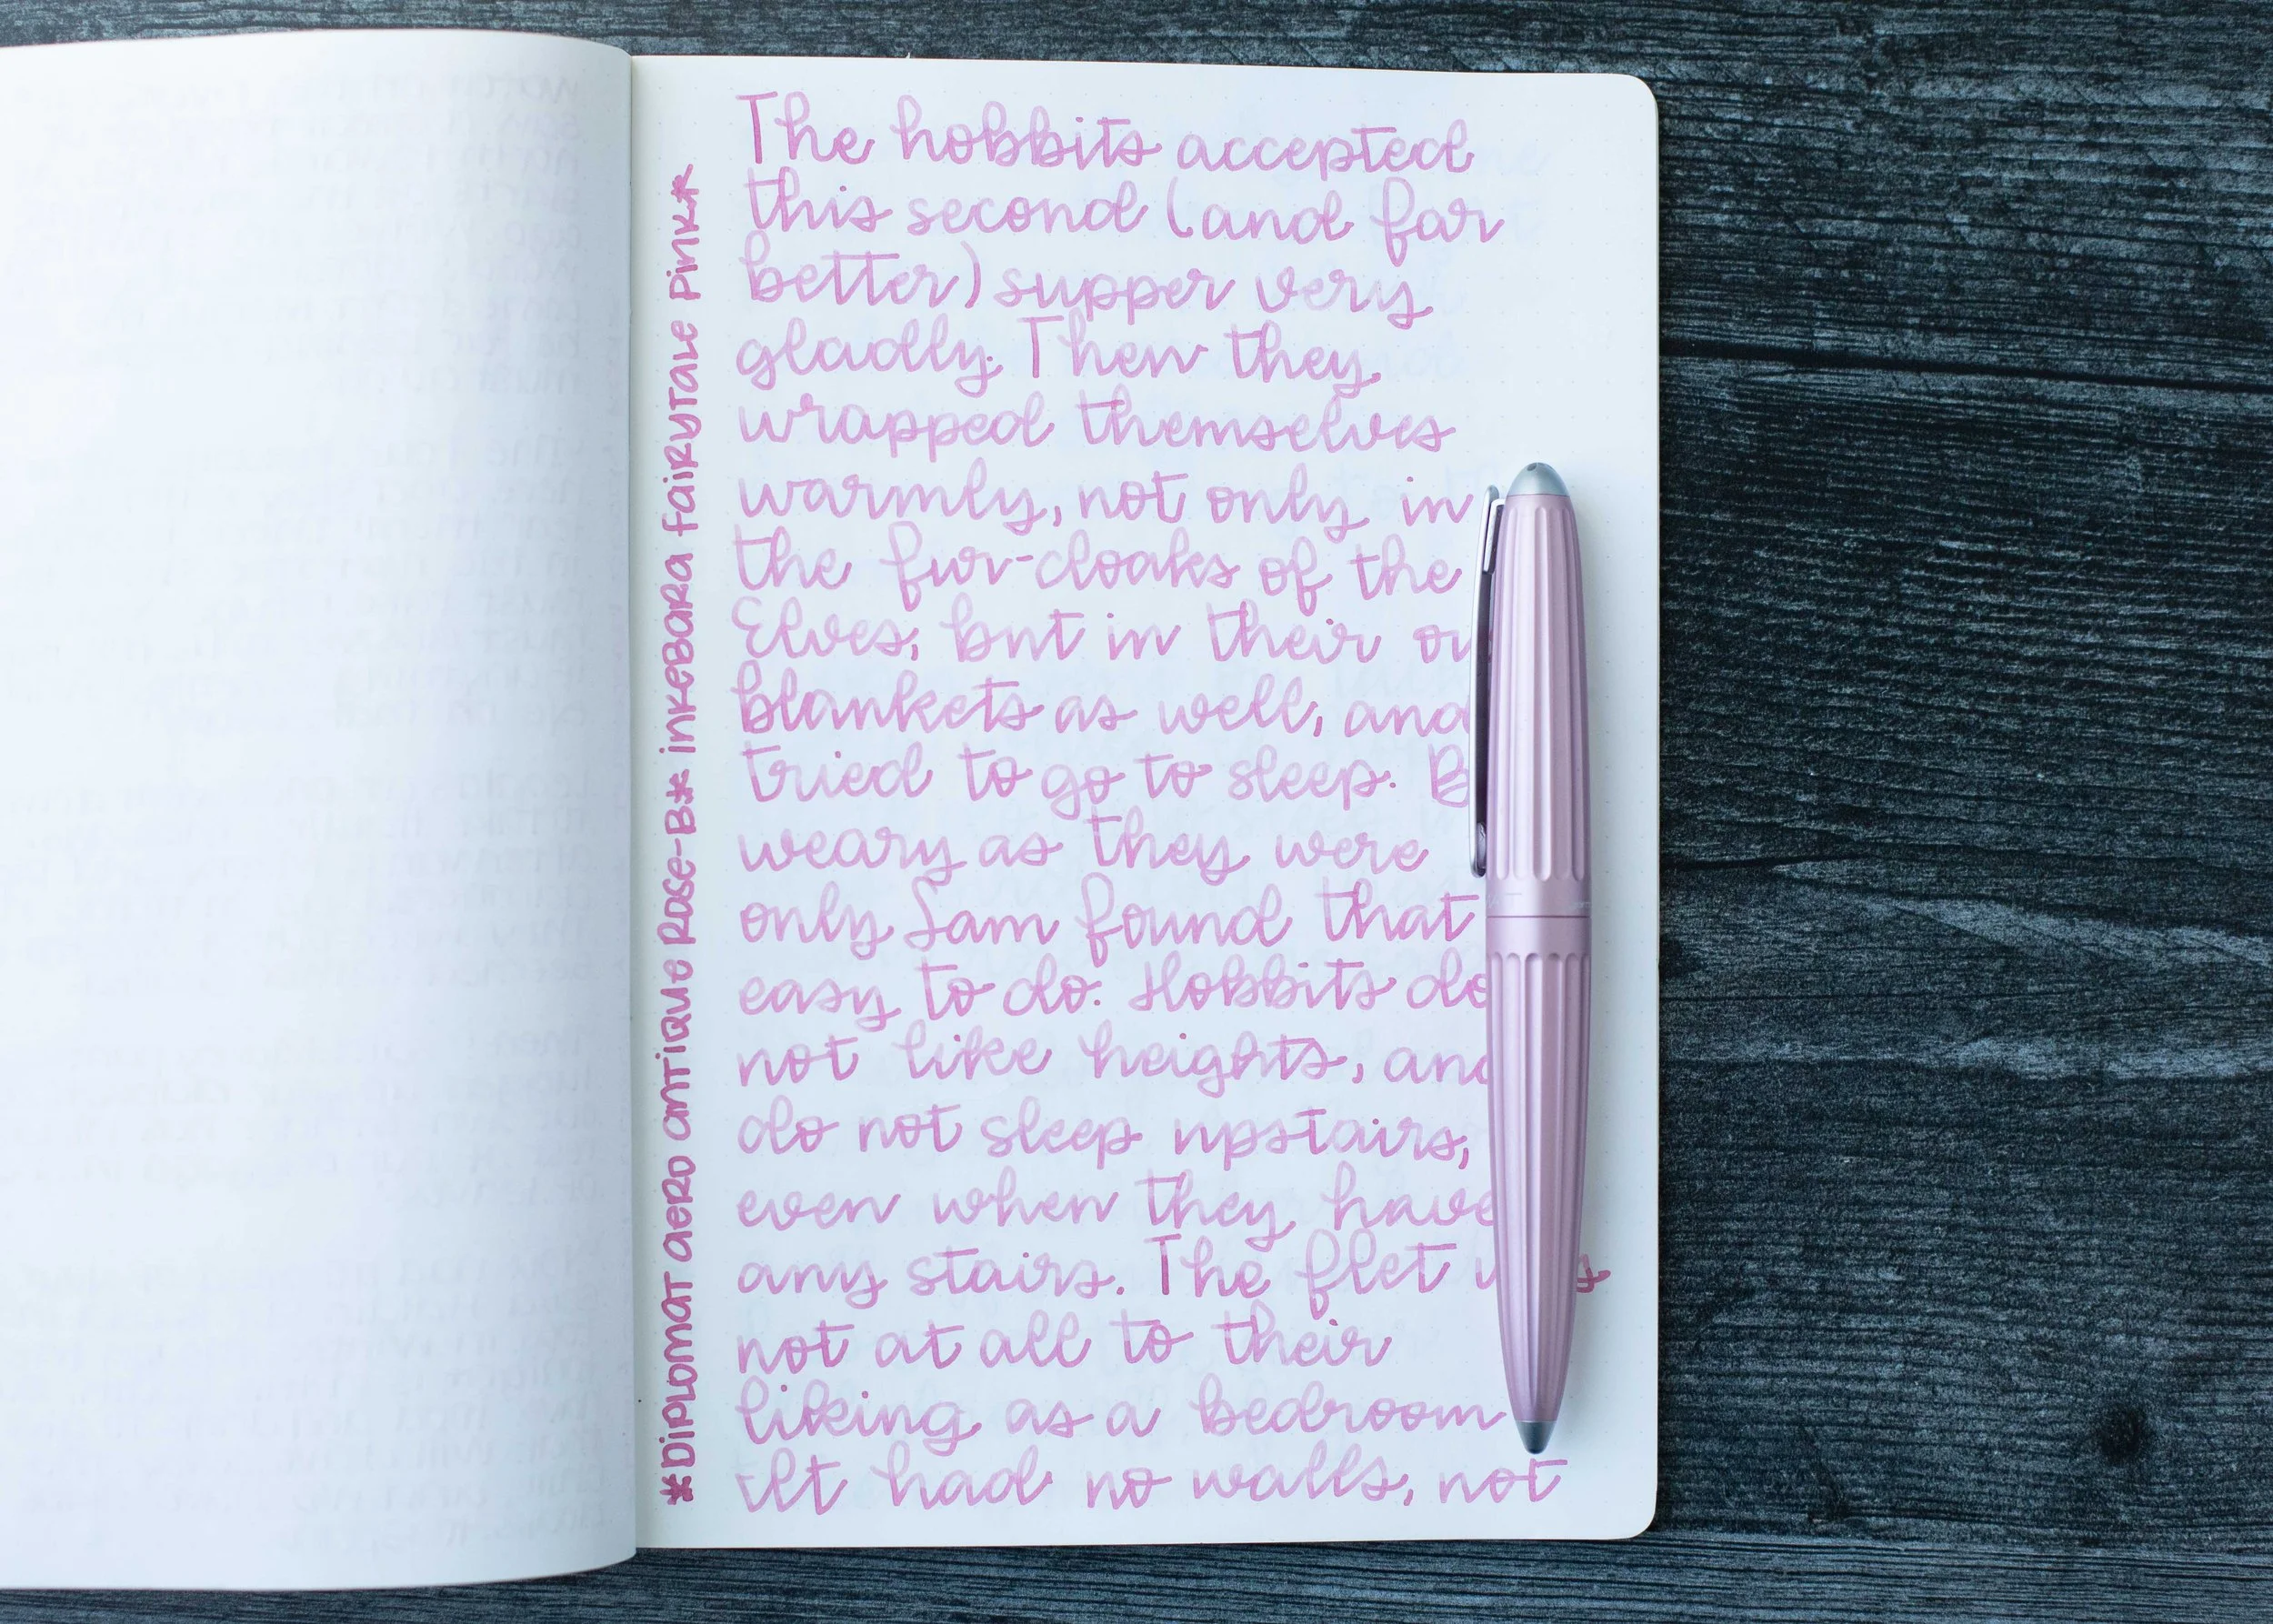 The hobbits accepted
this second (and far
better) supper very
gladly. Then they
wrapped themselves
warmly, not only in
the fur-cloaks of the
Elves, but in their
blankets as well, and
tried to go to sleep.
weary as they were
only Sam found that
easy to do. Hobbits do
not like heights, and
do not sleep upstairs,
even when they have
any stairs. The flet
not at all to their
liking as a bedroom
It had no walls, not
*Diplomat aero antique Rose-B* inkebara fairytale Pink*